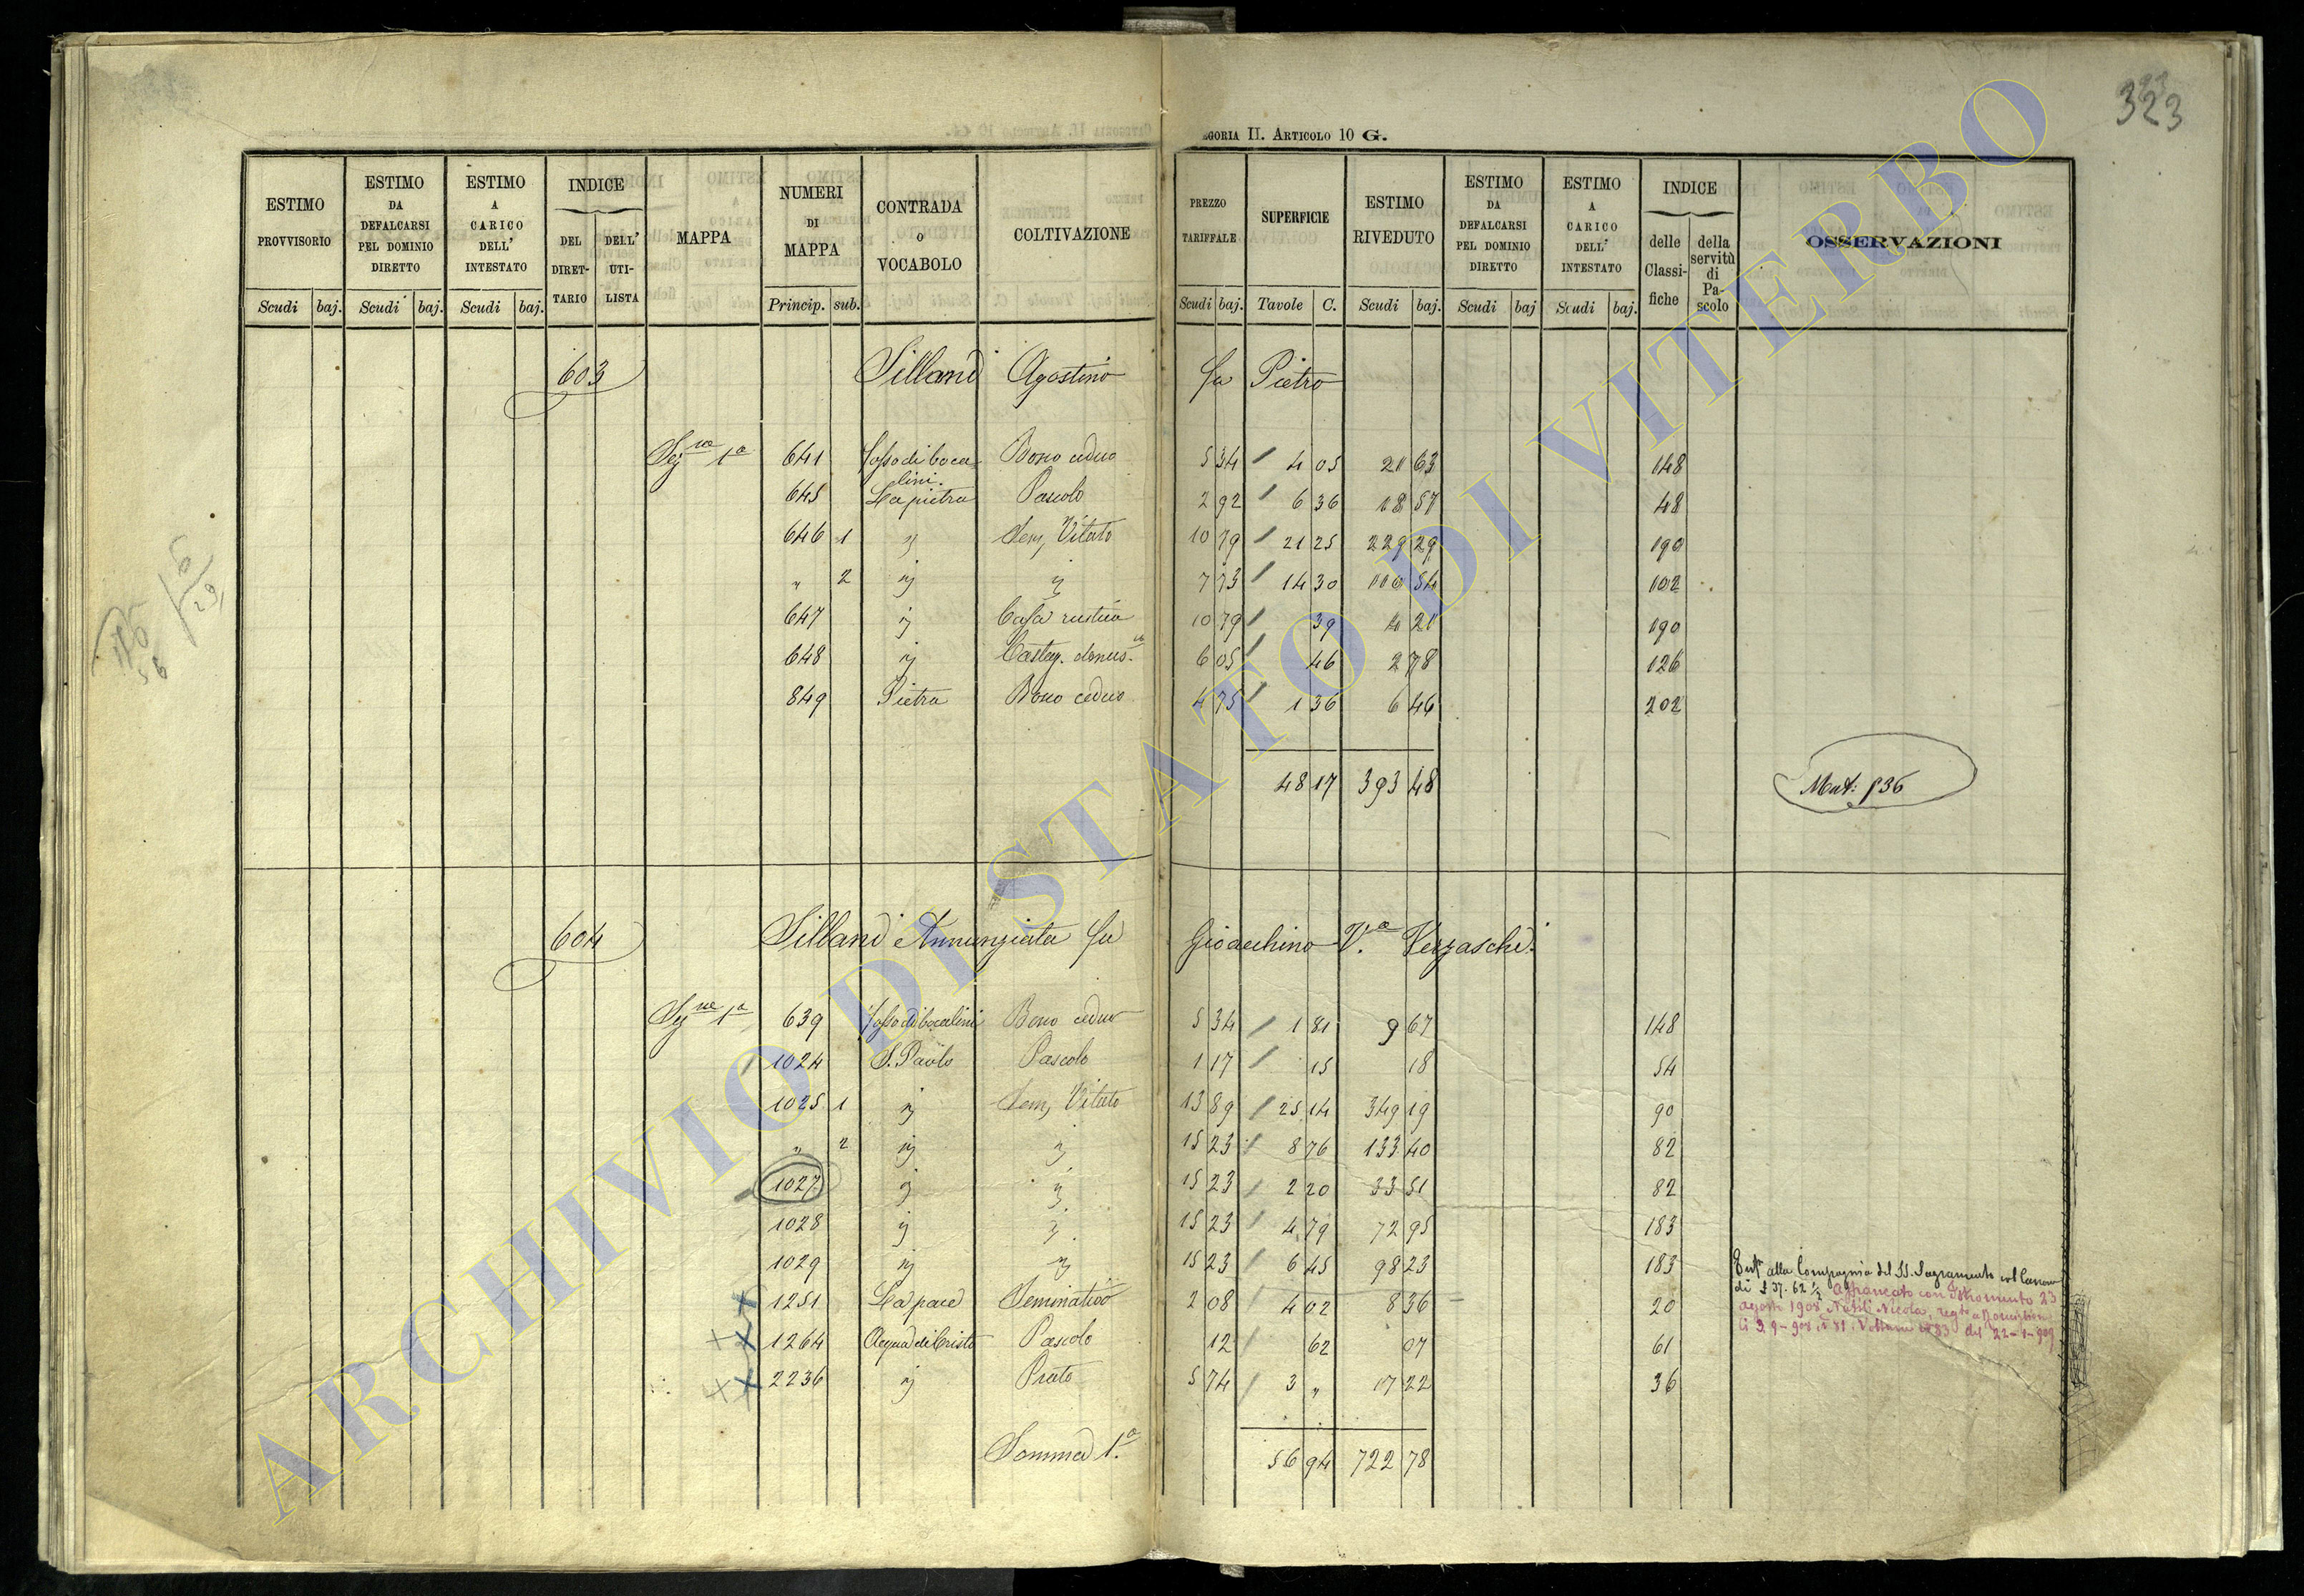 323
CATEGORIA II. ARTICOLO 10 G.
ESTIMO PROVVISORIO
ESTIMO DA DEFALCARSI PEL DOMINIO DIRETTO
ESTIMO A CARICO DELL' INTESTATO
INDICE
DEL DIRET-TARIO
DELL' UTI-LISTA
MAPPA
NUMERI DI MAPPA
CONTRADA O VOCABOLO
COLTIVAZIONE
PREZZO TARIFFALE
SUPERFICIE
ESTIMO RIVEDUTO
ESTIMO DA DEFALCARSI PEL DOMINIO DIRETTO
ESTIMO A CARICO DELL' INTESTATO
INDICE
delle Classi-fiche
della servitù di Pa-scolo
OSSERVAZIONI
Scudi baj. Scudi baj. Scudi baj. Princip. sub. Scudi baj. Tavole C. Scudi baj. Scudi baj Scudi baj.
603 Sillani Agostino fu Pietro
Sez.ne 1a 641 Fosso di boca-lini. Bosco ceduo 5 34 4 05 21 63 148
645 La pietra Pascolo 2 92 6 36 18 57 48
646 1 " Sem, Vitato 10 79 21 25 229 29 190
" 2 " " 7 73 14 30 110 54 102
647 " Casa rustica 10 79 39 4 21 190
648 " Castag. domes.ca 6 05 46 2 78 126
849 Pietra Bosco ceduo 4 75 1 36 6 46 202
48 17 393 48
Mut: 836
604 Sillani Annunziata fu Gioacchino V.a Verzaschi
Sez.ne 1a 639 Fosso di bocalini Bosco ceduo 5 34 1 81 9 67 148
1024 S. Paolo Pascolo 1 17 15 18 54
1025 1 " Sem, Vitato 13 89 25 14 349 19 90
" 2 " " 15 23 8 76 133 40 82
1027 " " 15 23 2 20 33 51 82
1028 " " 15 23 4 79 72 95 183
1029 " " 15 23 6 45 98 23 183
1251 La pace Seminativo 2 08 4 02 8 36 20
1264 Acqua di Cristo Pascolo 12 62 07 61
2236 " Prato 5 74 3 " 17 22 36
Enf.a alla Compagnia del SS. Sagramento col Canone
di $ 37. 62 1/2 Affrancato con Istromento 23
agosto 1908 Nobili Nicola, reg.to a Ronciglione
li 3-9-908 n 81 Voltura n 83 del 22-1-909
Somma 1.a 56 94 722 78